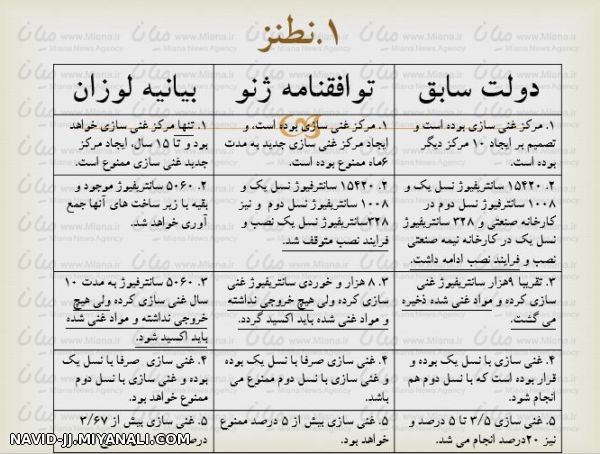 ۱.نطنز
دولت سابق
توافقنامه ژنو
بیانیه لوزان
۱. مرکز غنی سازی بوده است و
تصمیم بر ایجاد ۱۰ مرکز دیگر
بوده است.
۱. مرکز غنی سازی بوده است، و
ایجاد مرکز غنی سازی جدید به مدت
۶ماه ممنوع بوده است.
۱. تنها مرکز غنی سازی خواهد
بود و تا ۱۵ سال، ایجاد مرکز
جدید غنی سازی ممنوع است.
۲. ۱۵۴۲۰ سانترفیوژ نسل یک و
۱۰۰۸ سانترفیوژ نسل دوم در
کارخانه صنعتی و ۳۲۸ سانتریفیوژ
نسل یک در کارخانه نیمه صنعتی
نصب و فرایند نصب ادامه داشت.
۲. ۱۵۴۲۰ سانترفیوژ نسل یک و
۱۰۰۸ سانتریفیوژ نسل دوم و نیز
۳۲۸سانتریفیوژ نسل یک نصب و
فرایند نصب متوقف شد.
۲. ۵۰۶۰ سانتریفیوژ موجود و
بقیه با زیر ساخت های آنها جمع
آوری خواهد شد.
۳. تقریبا ۹هزار سانتریفیوژ غنی
سازی کرده و مواد غنی شده ذخیره
می گشت.
۳. ۸ هزار و خوردی سانتریفیوژ غنی
سازی کرده ولی هیچ خروجی نداشته
و مواد غنی شده باید اکسید گردد.
۳. ۵۰۶۰ سانترفیوژ به مدت ۱۰
سال غنی سازی کرده ولی هیچ
خروجی نداشته و مواد غنی شده
باید اکسید شود.
۴. غنی سازی با نسل یک بوده و
قرار بوده است که با نسل دوم هم
انجام شود.
۴. غنی سازی صرفا با نسل یک بوده
و غنی سازی با نسل دوم ممنوع می
باشد.
۴. غنی سازی صرفا با نسل یک
بوده و غنی سازی با نسل دوم
ممنوع خواهد بود.
۵. غنی سازی ۳/۵ تا ۵ درصد و
نیز ۲۰درصد انجام می شد.
۵. غنی سازی بیش از ۵ درصد ممنوع
خواهد بود.
۵. غنی سازی بیش از ۳/۶۷
درصد ممنوع است
NAVID-JJ.MIYANALI.COM
میانا
www.Miana.ir
Miana News Agency